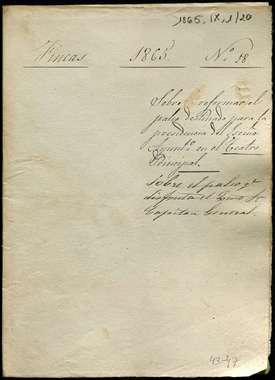 1865, IX, 1/20
Fincas 1865. Nº 38
Sobre reformar el
palco destinado para la
presidencia del Excmo
Ayuntº en el Teatro
Principal.
Sobre el palco qº
disfruta el Excmo Sr
Capitan General.
43-47